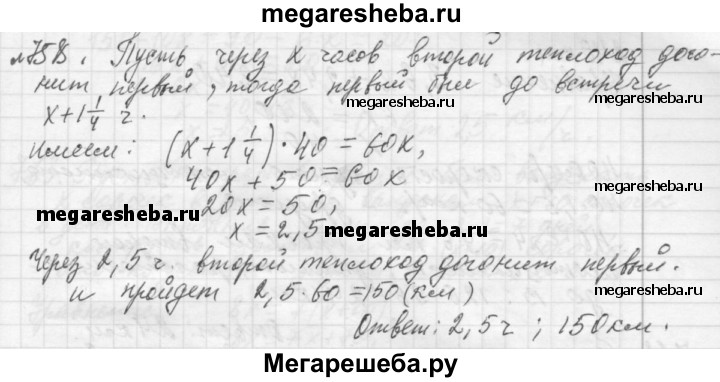 megaresheba.ru
№758. Пусть через x часов второй теплоход дого-
нит первый, тогда первый был до встречи
megaresheba.ru megaresheba.ru
x+1 1/4 ч.
Имеем: (x+1 1/4)·40=60x,
40x+50=60x
megaresheba.ru 20x=50, megaresheba.ru
x=2,5
Через 2,5 ч. второй теплоход догонит первый.
и пройдет 2,5·60=150(км) megaresheba.ru
Ответ: 2,5ч; 150км.
Мегарешеба.ру